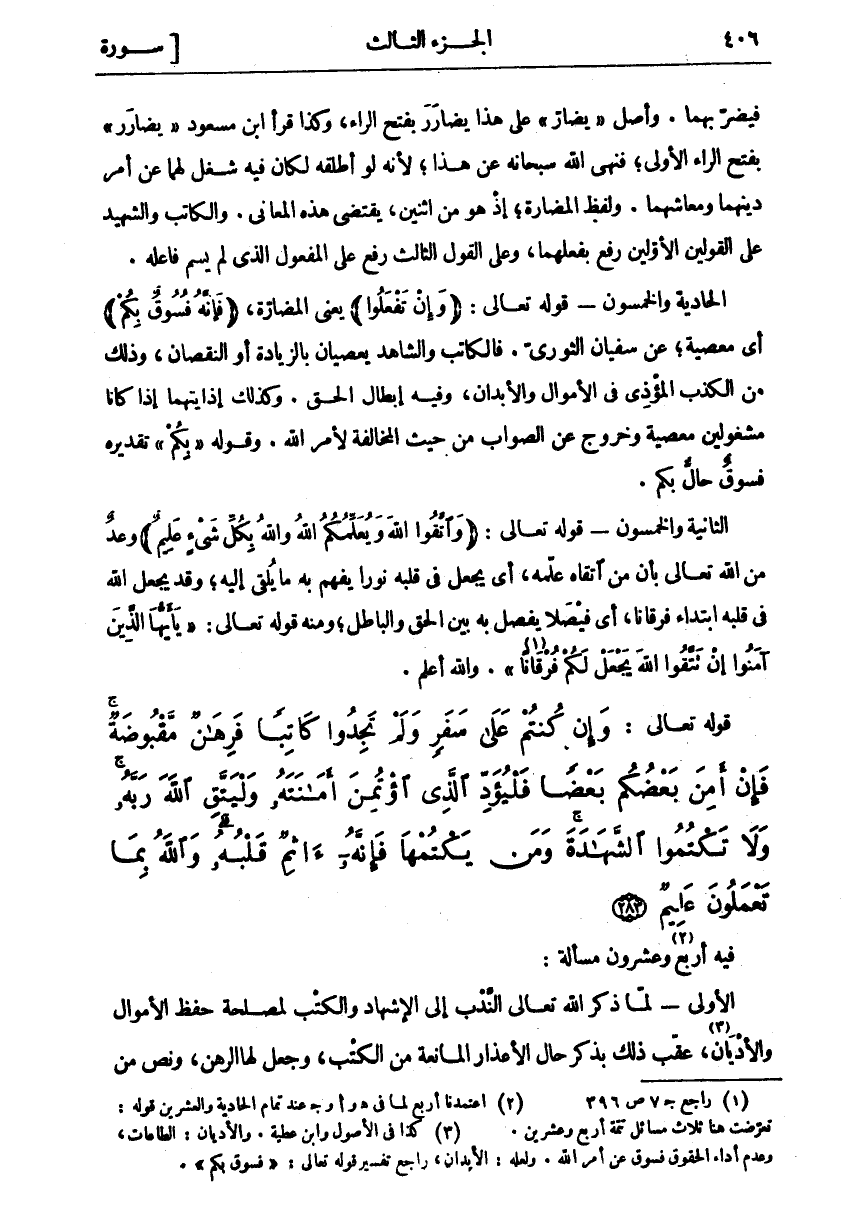 ٤٠٦ الجـزء الثـالث [ ســورة
فيضرّ بهما . وأصل « يضارّ » على هذا يضارَرَ بفتح الراء، وكذا قرأ ابن مسعود « يضارَر »
بفتح الراء الأولى؛ فنهى الله سبحانه عن هـذا ؛ لأنه لو أطلقه لكان فيه شـغل لهما عن أمر
دينهما ومعاشهما . ولفظ المضارة؛ إذْ هو من اثنين، يقتضى هذه المعانى . والكاتب والشهيد
على القولين الأوّلين رفع بفعلهما، وعلى القول الثالث رفع على المفعول الذى لم يسم فاعله .
الحادية والخمسون — قوله تعـالى : ﴿ وَإِنْ تَفْعَلُوا ﴾ يعنى المضارّة، ﴿ فَإِنَّهُ فُسُوقٌ بِكُمْ ﴾
أى معصية؛ عن سفيان الثورىّ . فالكاتب والشاهد يعصيان بالزيادة أو النقصان ، وذلك
من الكذب المؤْذِى فى الأموال والأبدان، وفيـه إبطال الحـق . وكذلك إذايتهما إذا كانا
مشغولين معصية وخروج عن الصواب من حيث المخالفة لأمر الله . وقـوله « بِكُمْ » تقديره
فسوقٌ حالٌّ بكم .
الثانية والخمسون — قوله تعـالى : ﴿ وَٱتَّقُوا اللهَ وَيُعَلِّمُكُمُ اللهُ واللهُ بِكُلِّ شَىْءٍ عَلِيمٌ ﴾ وعدٌ
من الله تعـالى بأن من ٱتقاه علّمه، أى يجعل فى قلبه نورا يفهم به ما يُلقى إليه؛ وقد يجعل الله
فى قلبه ابتداء فرقانا، أى فيْصَلا يفصل به بين الحق والباطل؛ ومنه قوله تعـالى : « يَأَيُّهَا الَّذِينَ
آمَنُوا إنْ تَتَّقُوا اللهَ يَجْعَلْ لَكُمْ فُرْقَانًا (١) » . والله أعلم .
قوله تعـالى : وَإِن كُنتُمْ عَلَىٰ سَفَرٍ وَلَمْ تَجِدُوا كَاتِبًا فَرِهَـٰنٌ مَّقْبُوضَةٌ ۖ
فَإِنْ أَمِنَ بَعْضُكُم بَعْضًا فَلْيُؤَدِّ ٱلَّذِى ٱؤْتُمِنَ أَمَـٰنَتَهُۥ وَلْيَتَّقِ ٱللَّهَ رَبَّهُۥ ۗ
وَلَا تَكْتُمُوا ٱلشَّهَـٰدَةَ ۚ وَمَن يَكْتُمْهَا فَإِنَّهُۥٓ ءَاثِمٌ قَلْبُهُۥ ۗ وَٱللَّهُ بِمَا
تَعْمَلُونَ عَلِيمٌ ﴿٢٨٣﴾
فيه أربع (٢) وعشرون مسألة :
الأولى — لمّا ذكر الله تعالى النَّدْب إلى الإشهاد والكتْب لمصلحة حفظ الأموال
والأدْيان (٣)، عقّب ذلك بذكر حال الأعذار المـانعة من الكتْب، وجعل لها الرهن، ونص من
(١) راجع جـ ٧ ص ٣٩٦ (٢) اعتمدنا أربع لما فى هـ و أ و جـ عند تمام الحادية والعشرين قوله :
تعرّضت هنا ثلاث مسائل تتمة أربع وعشرين . (٣) كذا فى الأصول وابن عطية . والأديان : الطاعات،
وعدم أداء الحقوق فسوق عن أمر الله . ولعله : الأبدان، راجع تفسير قوله تعالى : « فسوق بكم » .